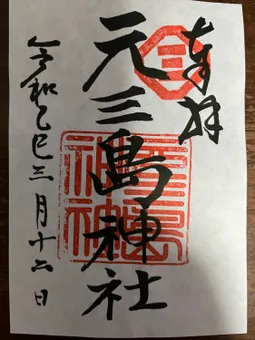 奉拝
元三島神社
令和乙巳三月十六日